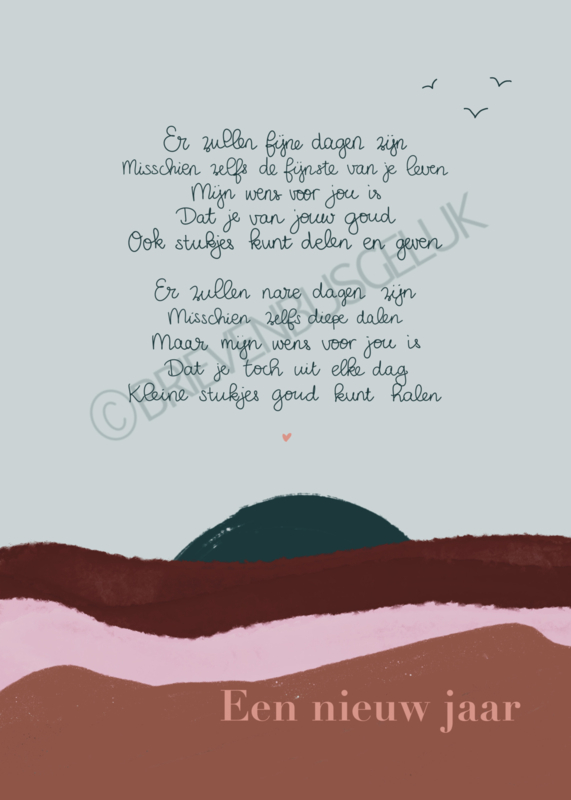 Er zullen fijne dagen zijn
Misschien zelfs de fijnste van je leven
Mijn wens voor jou is
Dat je van jouw goud
Ook stukjes kunt delen en geven
Er zullen nare dagen zijn
Misschien zelfs diepe dalen
Maar mijn wens voor jou is
Dat je toch uit elke dag
Kleine stukjes goud kunt halen
©BRIEVENBUSGELIJK
Een nieuw jaar